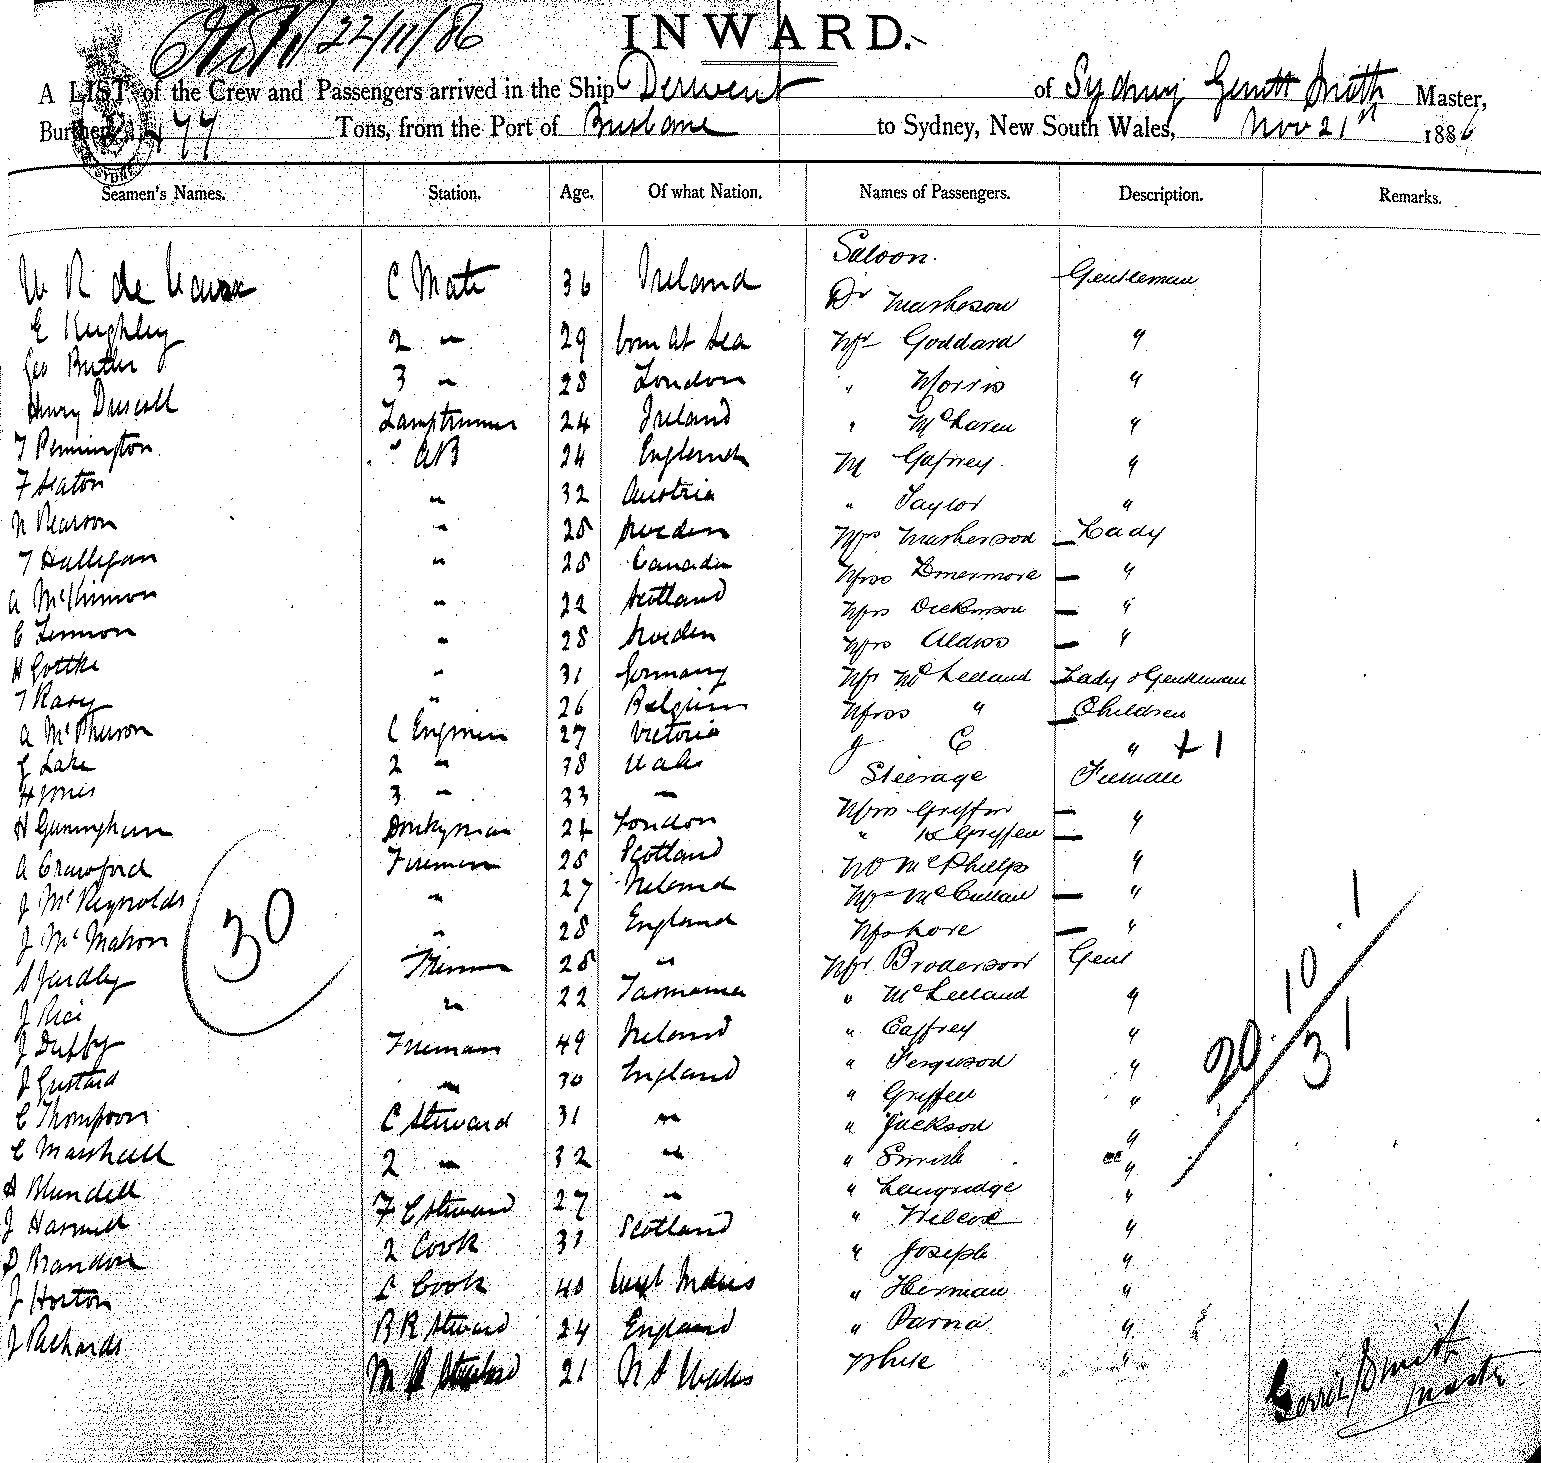 22/11/86
INWARD.
A LIST of the Crew and Passengers arrived in the Ship Derwent of Sydney Gerritt Smith Master,
Burthen 477 Tons, from the Port of Brisbane to Sydney, New South Wales, Nov 21st 1886
Seamen's Names. Station. Age. Of what Nation. Names of Passengers. Description. Remarks.
Saloon.
W R de C Mate 36 Ireland Dr Gentleman
E Keighley 2 " 29 born at Sea Mr Goddard "
Geo Butler 3 " 28 London " Morris "
Henry Driscoll Lamptrimmer 24 Ireland " McLaren "
T Pennington " AB 24 England M Gafney "
F Seaton " 32 Austria " Taylor "
N Pearson " 25 Sweden Mrs Lady
T Halligan " 25 Canada Miss "
A McKinnon " 22 Scotland Mrs Dickinson "
C Lennon " 28 Sweden Mrs Aldiss "
H Gottke " 31 Germany Mr McLelland Lady & Gentleman
T Rasy " 26 Belgium Miss " Children
A McPherson C Engineer 27 Victoria J C " + 1
G Lake 2 " 38 Wales Steerage Female
H Jones 3 " 33 " Miss Griffin
H Gunningham Donkyman 24 London " Griffen "
A Crawford Fireman 25 Scotland McPhelps "
J McReynolds " 27 Ireland McCullan "
J McMahon " 28 England Mrs Lore "
S Yardley Trimmer 25 " Mr Broderson Gent
J Rice " 22 Tasmania " McLelland "
J Duffy Fireman 49 Ireland " Caffrey "
J Gustard " 30 England " Ferguson "
C Thompson C Steward 31 " " Griffen "
C Marshall 2 " 32 " " Jackson "
H Blundell F C Steward 27 " " Smith "
J 2 Cook 31 Scotland " Langridge "
D Brandon C Cook 40 West Indies " Wilcox "
J Horton B R Steward 24 England " Joseph "
J Richards 21 N S Wales " Herman "
" Parna "
White "
30
20 . 10 . 1
31
Gerrit Smith
Master